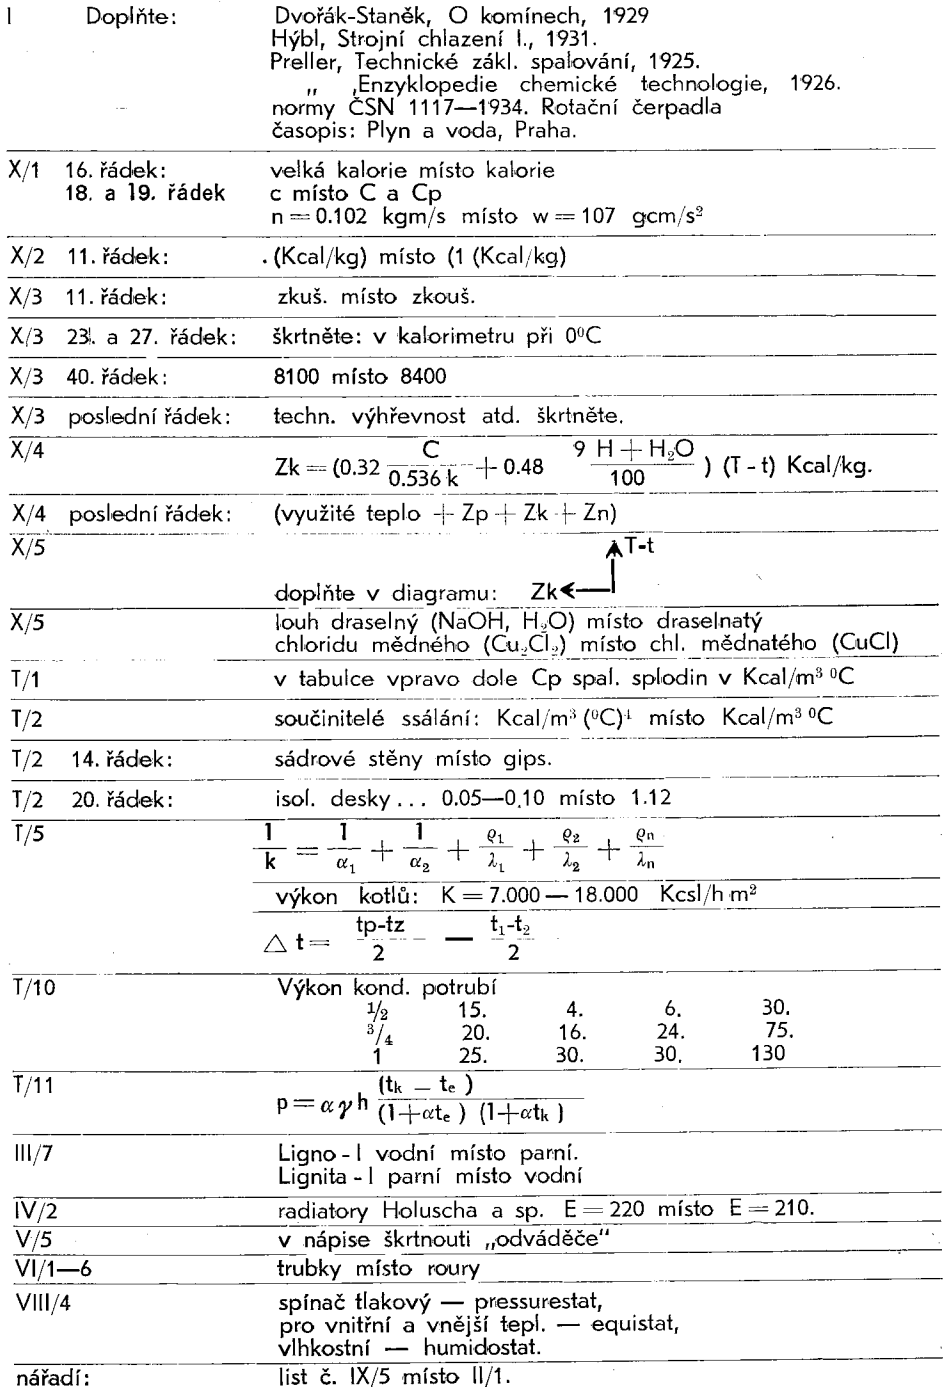 I Doplňte: Dvořák-Staněk, O komínech, 1929
Hýbl, Strojní chlazení I., 1931.
Preller, Technické zákl. spalování, 1925.
„ ,Enzyklopedie chemické technologie, 1926.
normy ČSN 1117—1934. Rotační čerpadla
časopis: Plyn a voda, Praha.
X/1 16. řádek: velká kalorie místo kalorie
18. a 19. řádek c místo C a Cp
n = 0.102 kgm/s místo w = 107 gcm/s²
X/2 11. řádek: . (Kcal/kg) místo (1 (Kcal/kg)
X/3 11. řádek: zkuš. místo zkouš.
X/3 23. a 27. řádek: škrtněte: v kalorimetru při 0⁰C
X/3 40. řádek: 8100 místo 8400
X/3 poslední řádek: techn. výhřevnost atd. škrtněte.
X/4 Zk = (0.32 C/0.536 k + 0.48 9 H + H₂O/100 ) (T - t) Kcal/kg.
X/4 poslední řádek: (využité teplo + Zp + Zk + Zn)
X/5 T-t
doplňte v diagramu: Zk
X/5 louh draselný (NaOH, H₂O) místo draselnatý
chloridu mědného (Cu₂Cl₂) místo chl. mědnatého (CuCl)
T/1 v tabulce vpravo dole Cp spal. splodin v Kcal/m³ ⁰C
T/2 součinitelé ssálání: Kcal/m³ (⁰C)⁴ místo Kcal/m³ ⁰C
T/2 14. řádek: sádrové stěny místo gips.
T/2 20. řádek: isol. desky... 0.05—0.10 místo 1.12
T/5 1/k = 1/α₁ + 1/α₂ + ϱ₁/λ₁ + ϱ₂/λ₂ + ϱn/λn
výkon kotlů: K = 7.000 — 18.000 Kcsl/h m²
△ t = tp-tz/2 — t₁-t₂/2
T/10 Výkon kond. potrubí
½ 15. 4. 6. 30.
³/₄ 20. 16. 24. 75.
1 25. 30. 30. 130
T/11 p = α γ h (tk — te )/(1+αte ) (1+αtk )
III/7 Ligno - I vodní místo parní.
Lignita - I parní místo vodní
IV/2 radiatory Holuscha a sp. E = 220 místo E = 210.
V/5 v nápise škrtnouti „odváděče"
VI/1—6 trubky místo roury
VIII/4 spínač tlakový — pressurestat,
pro vnitřní a vnější tepl. — equistat,
vlhkostní — humidostat.
nářadí: list č. IX/5 místo II/1.